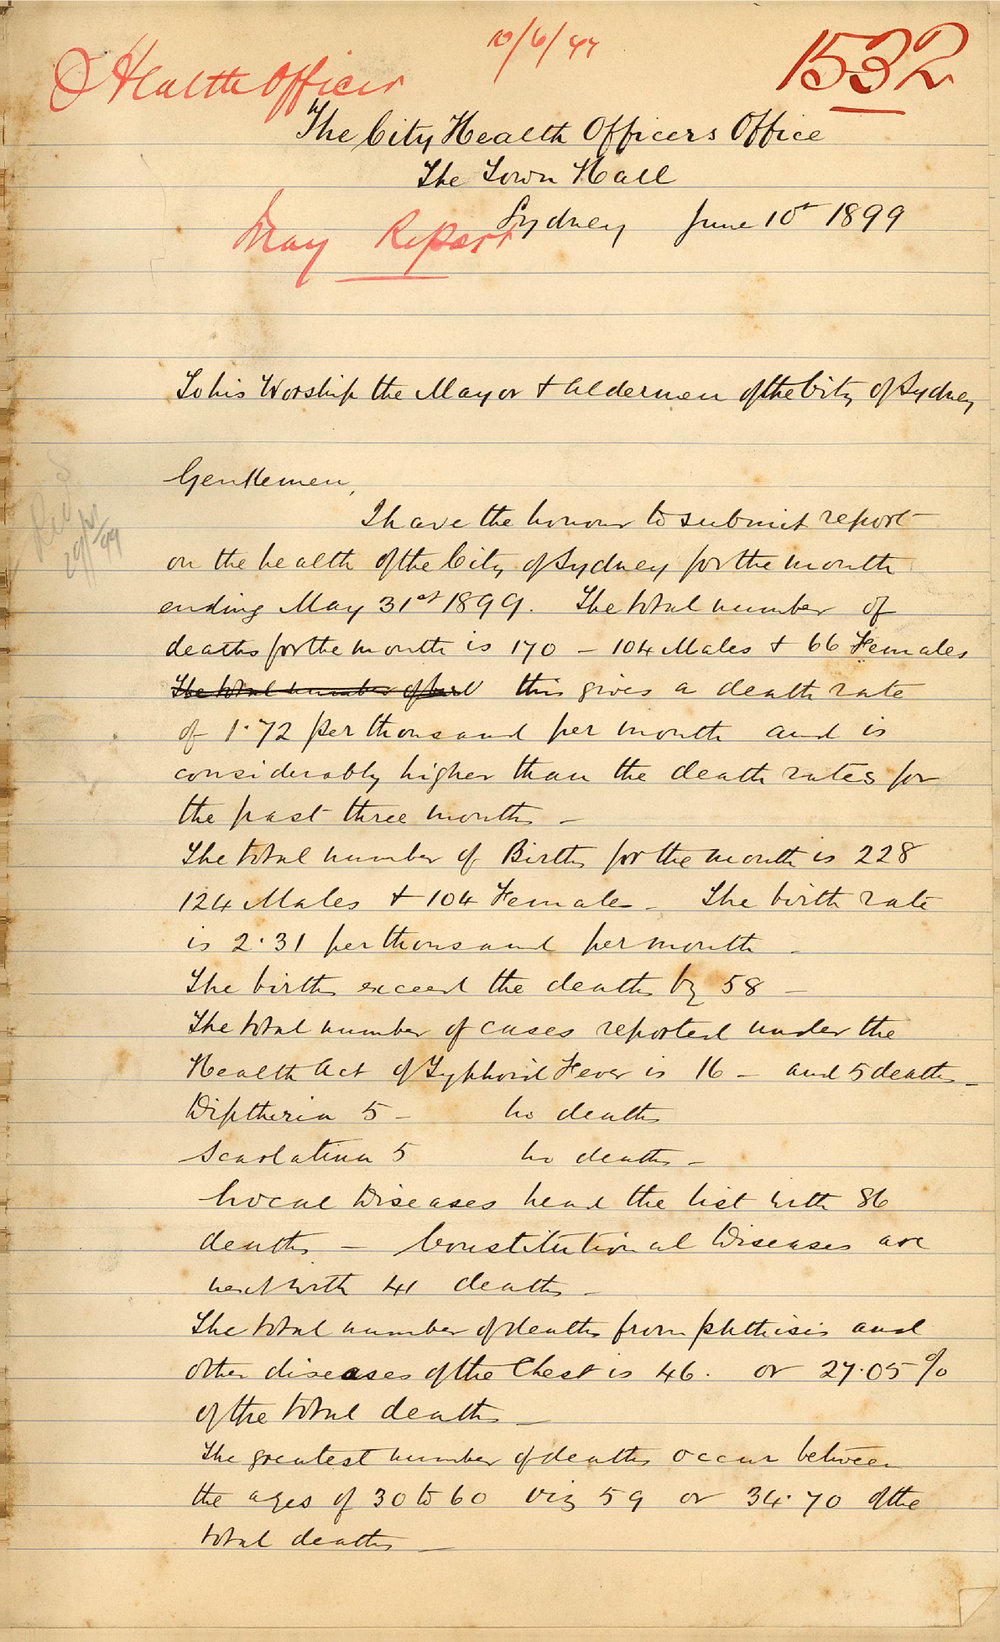 Health Officer
10/6/99
1532
The City Health Officers Office
The Town Hall
Sydney June 10th 1899
May Report
To his Worship the Mayor + Aldermen of the City of Sydney
Gentlemen,
I have the honour to submit report
on the health of the City of Sydney for the month
ending May 31st 1899. The total number of
deaths for the month is 170 – 104 Males + 66 Females
The total number of this gives a death rate
of 1.72 per thousand per month and is
considerably higher than the death rates for
the past three months –
The total number of Births for the month is 228
124 Males + 104 Females – The birth rate
is 2.31 per thousand per month –
The births exceed the deaths by 58 –
The total number of cases reported under the
Health Act of Typhoid Fever is 16 – and 5 deaths –
Diptheria 5 – no deaths
Scarlatina 5 no deaths –
Local Diseases head the list with 86
deaths – Constitutional Diseases are
next with 41 deaths –
The total number of deaths from phthisis and
other diseases of the Chest is 46. or 27.05 %
of the total deaths –
The greatest number of deaths occur between
the ages of 30 to 60 viz 59 or 34.70 of the
total deaths –